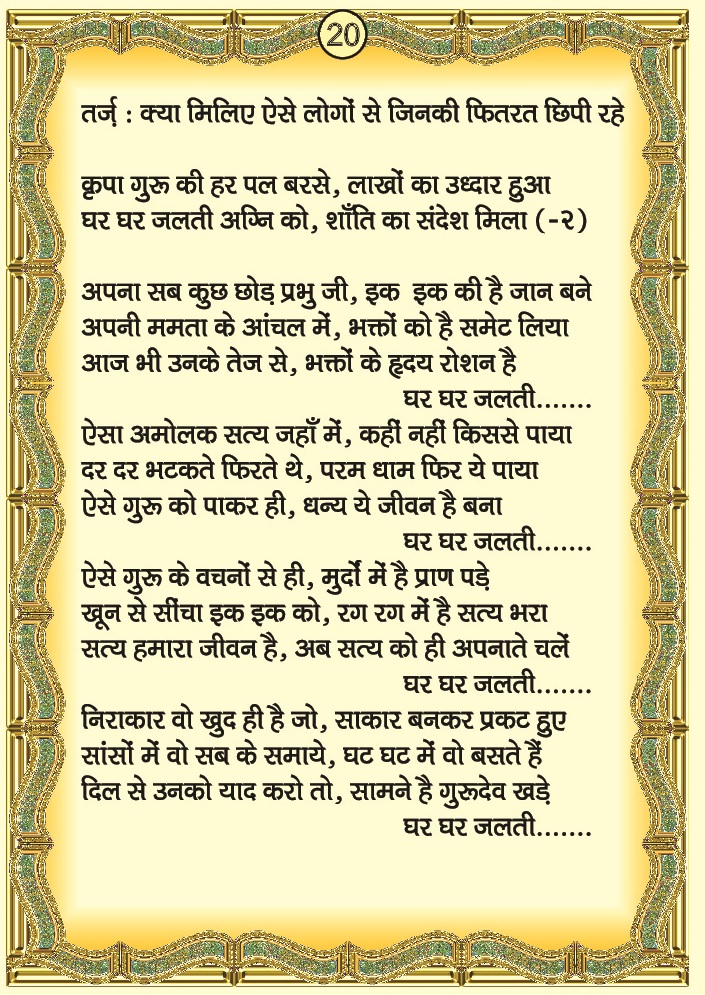 20
तर्ज़ : क्या मिलिए ऐसे लोगों से जिनकी फितरत छिपी रहे
कृपा गुरू की हर पल बरसे, लाखों का उध्दार हुआ
घर घर जलती अग्नि को, शाँति का संदेश मिला (-२)
अपना सब कुछ छोड़ प्रभु जी, इक इक की है जान बने
अपनी ममता के आंचल में, भक्तों को है समेट लिया
आज भी उनके तेज से, भक्तों के हृदय रोशन है
घर घर जलती.......
ऐसा अमोलक सत्य जहाँ में, कहीं नहीं किससे पाया
दर दर भटकते फिरते थे, परम धाम फिर ये पाया
ऐसे गुरू को पाकर ही, धन्य ये जीवन है बना
घर घर जलती.......
ऐसे गुरू के वचनों से ही, मुर्दों में है प्राण पड़े
खून से सींचा इक इक को, रग रग में है सत्य भरा
सत्य हमारा जीवन है, अब सत्य को ही अपनाते चलें
घर घर जलती.......
निराकार वो खुद ही है जो, साकार बनकर प्रकट हुए
सांसों में वो सब के समाये, घट घट में वो बसते हैं
दिल से उनको याद करो तो, सामने है गुरूदेव खड़े
घर घर जलती.......